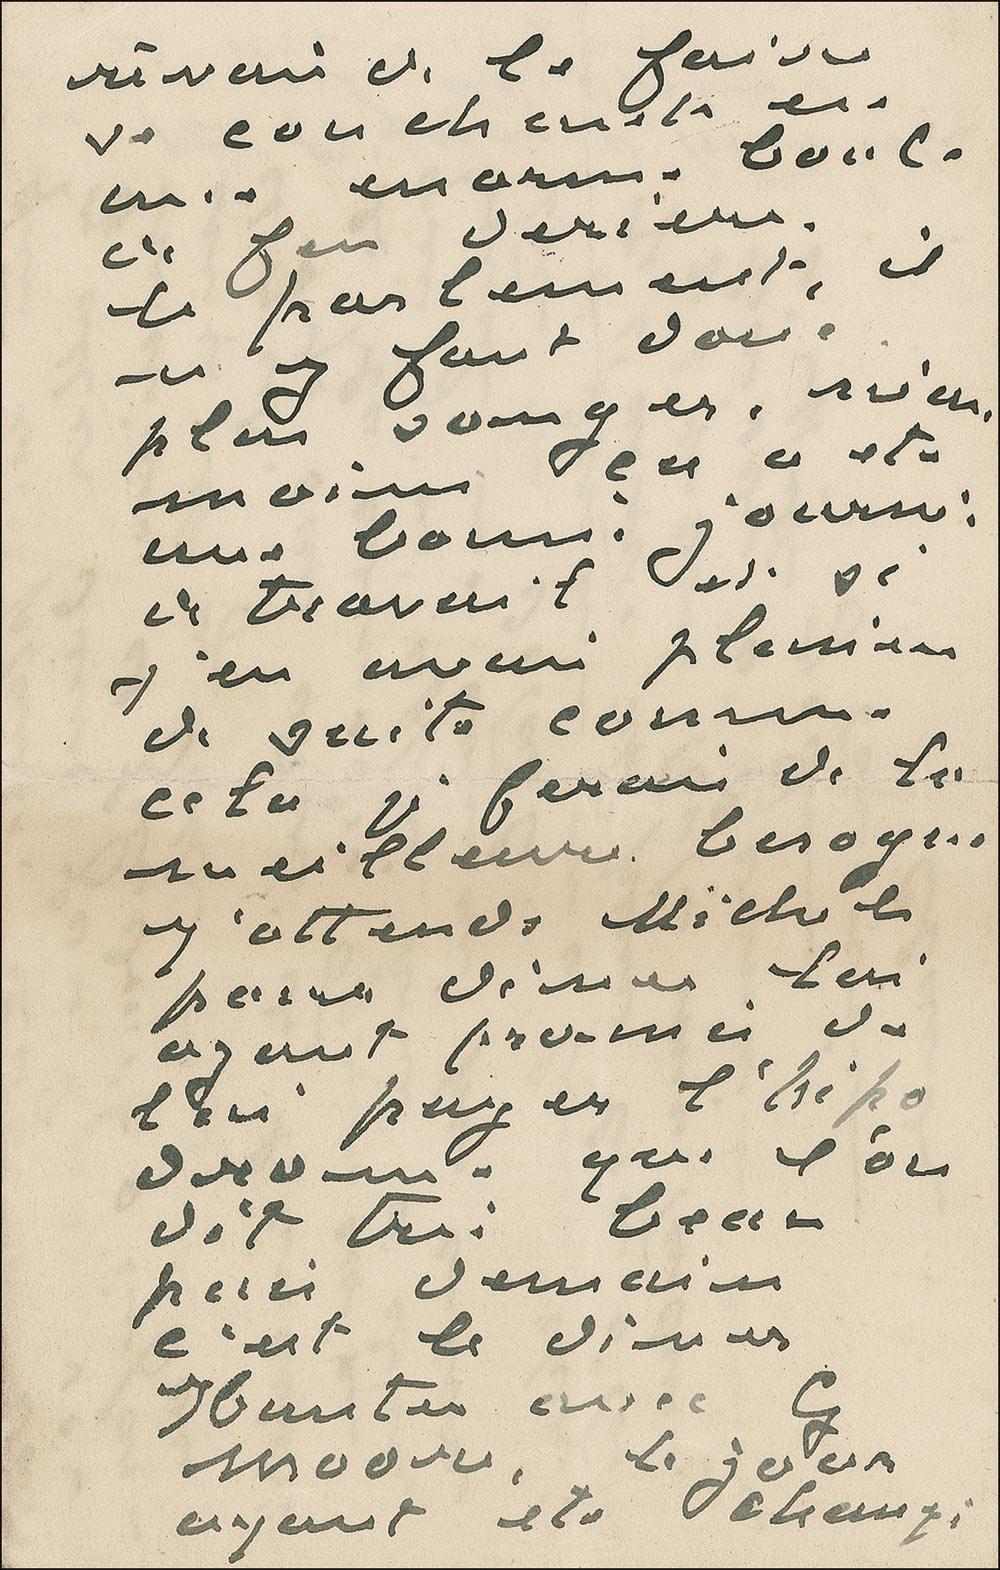 rêvais de le faire
se coucher dans
une énorme boule
de feu derrière
le parlement, il
n'y faut donc
plus songer. rien.
moins ça a été
une bonne journée
de travail et si
j'en avais plusieurs
de suite comme
cela je ferais de la
meilleure besogne
j'attends Michel
pour dîner lui
ayant promis de
lui payer l'hippo
drome que l'on
dit très beau
puis demain
c'est le dîner
Hunter avec G
Moore, le jour
ayant été changé